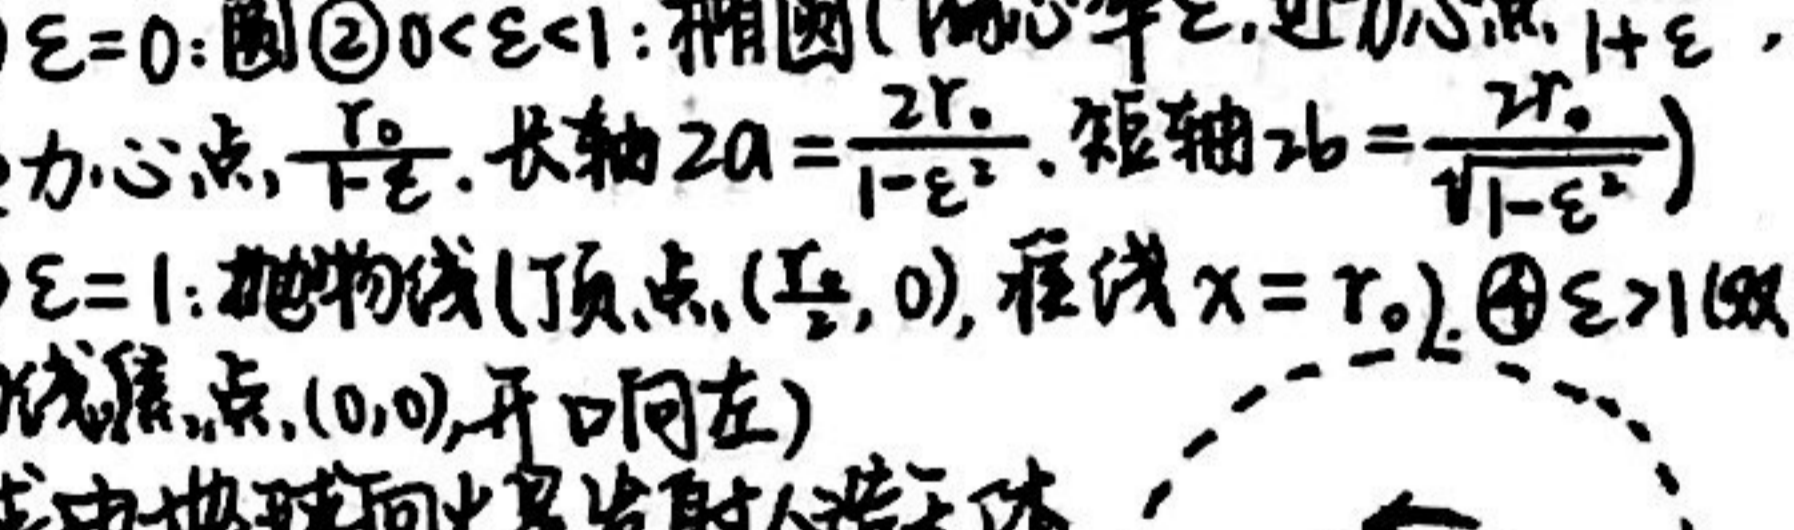 ε=0:圆②0<ε<1:椭圆(偏心率ε.近力心点 1+ε ,
力心点, r₀/1-ε. 长轴2a=2r₀/1-ε². 短轴2b=2r₀/√1-ε²)
ε=1:抛物线(顶点(r₀/2,0),准线x=r₀).④ε>1(双
线焦点(0,0),开口向左)
由地球向火星发射人造天体